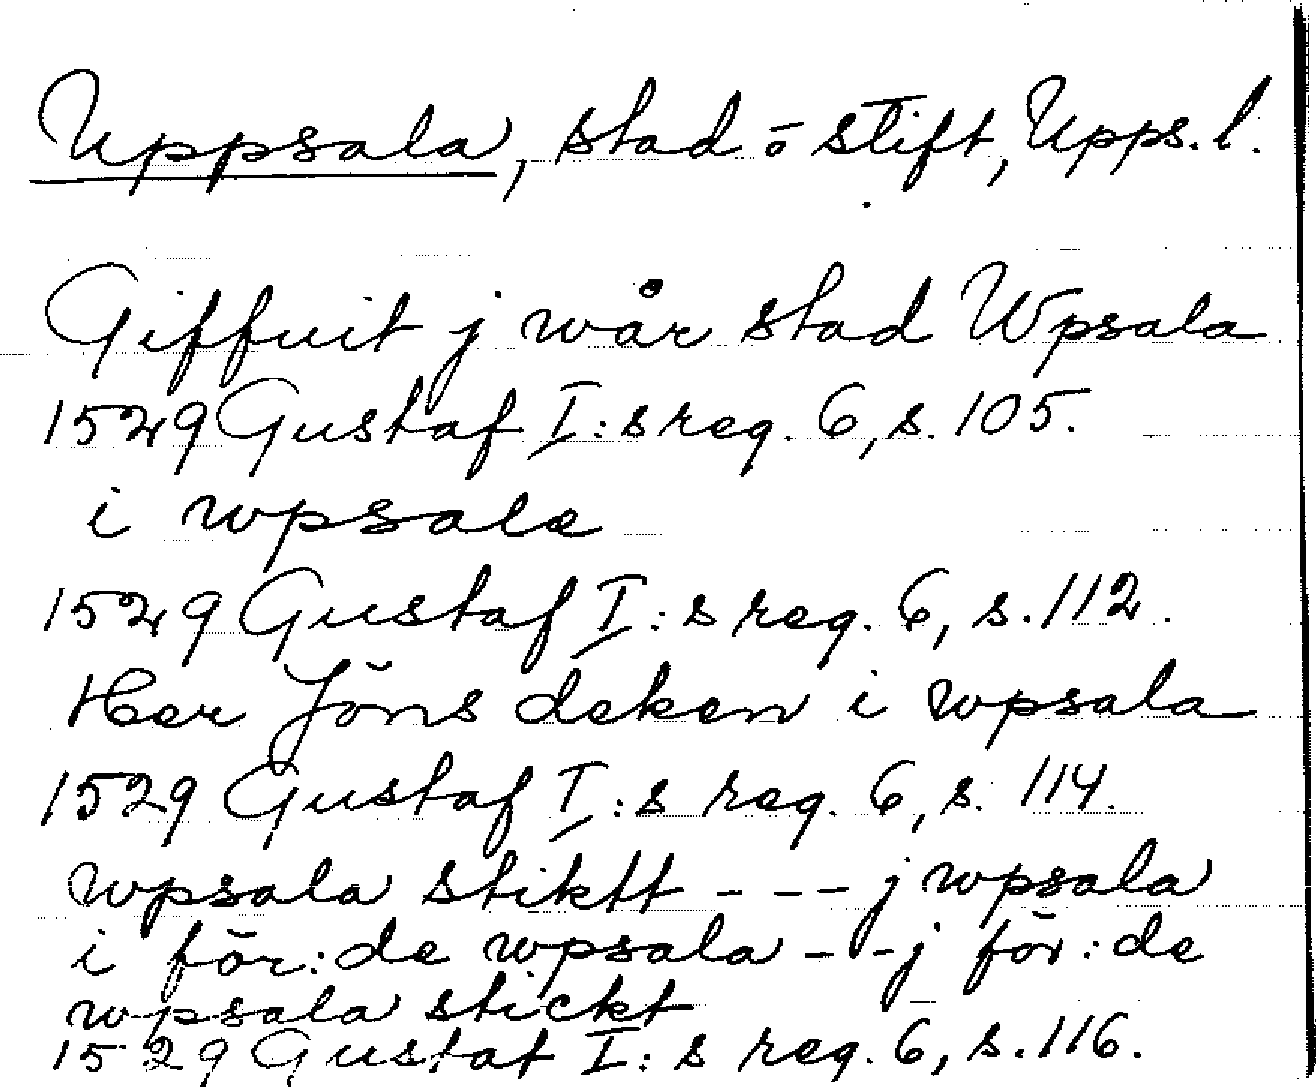 Uppsala, stad ō stift, Upps. l.
Giffuit j wår stad Wpsala
1529 Gustaf I:s reg. 6, s. 105.
i wpsala
1529 Gustaf I:s reg. 6, s. 112.
Her Jöns deken i wpsala
1529 Gustaf I:s reg. 6, s. 114.
wpsala stiktt - - - j wpsala
i för:de wpsala - - - j för:de
wpsala stickt
1529 Gustaf I:s reg. 6, s. 116.